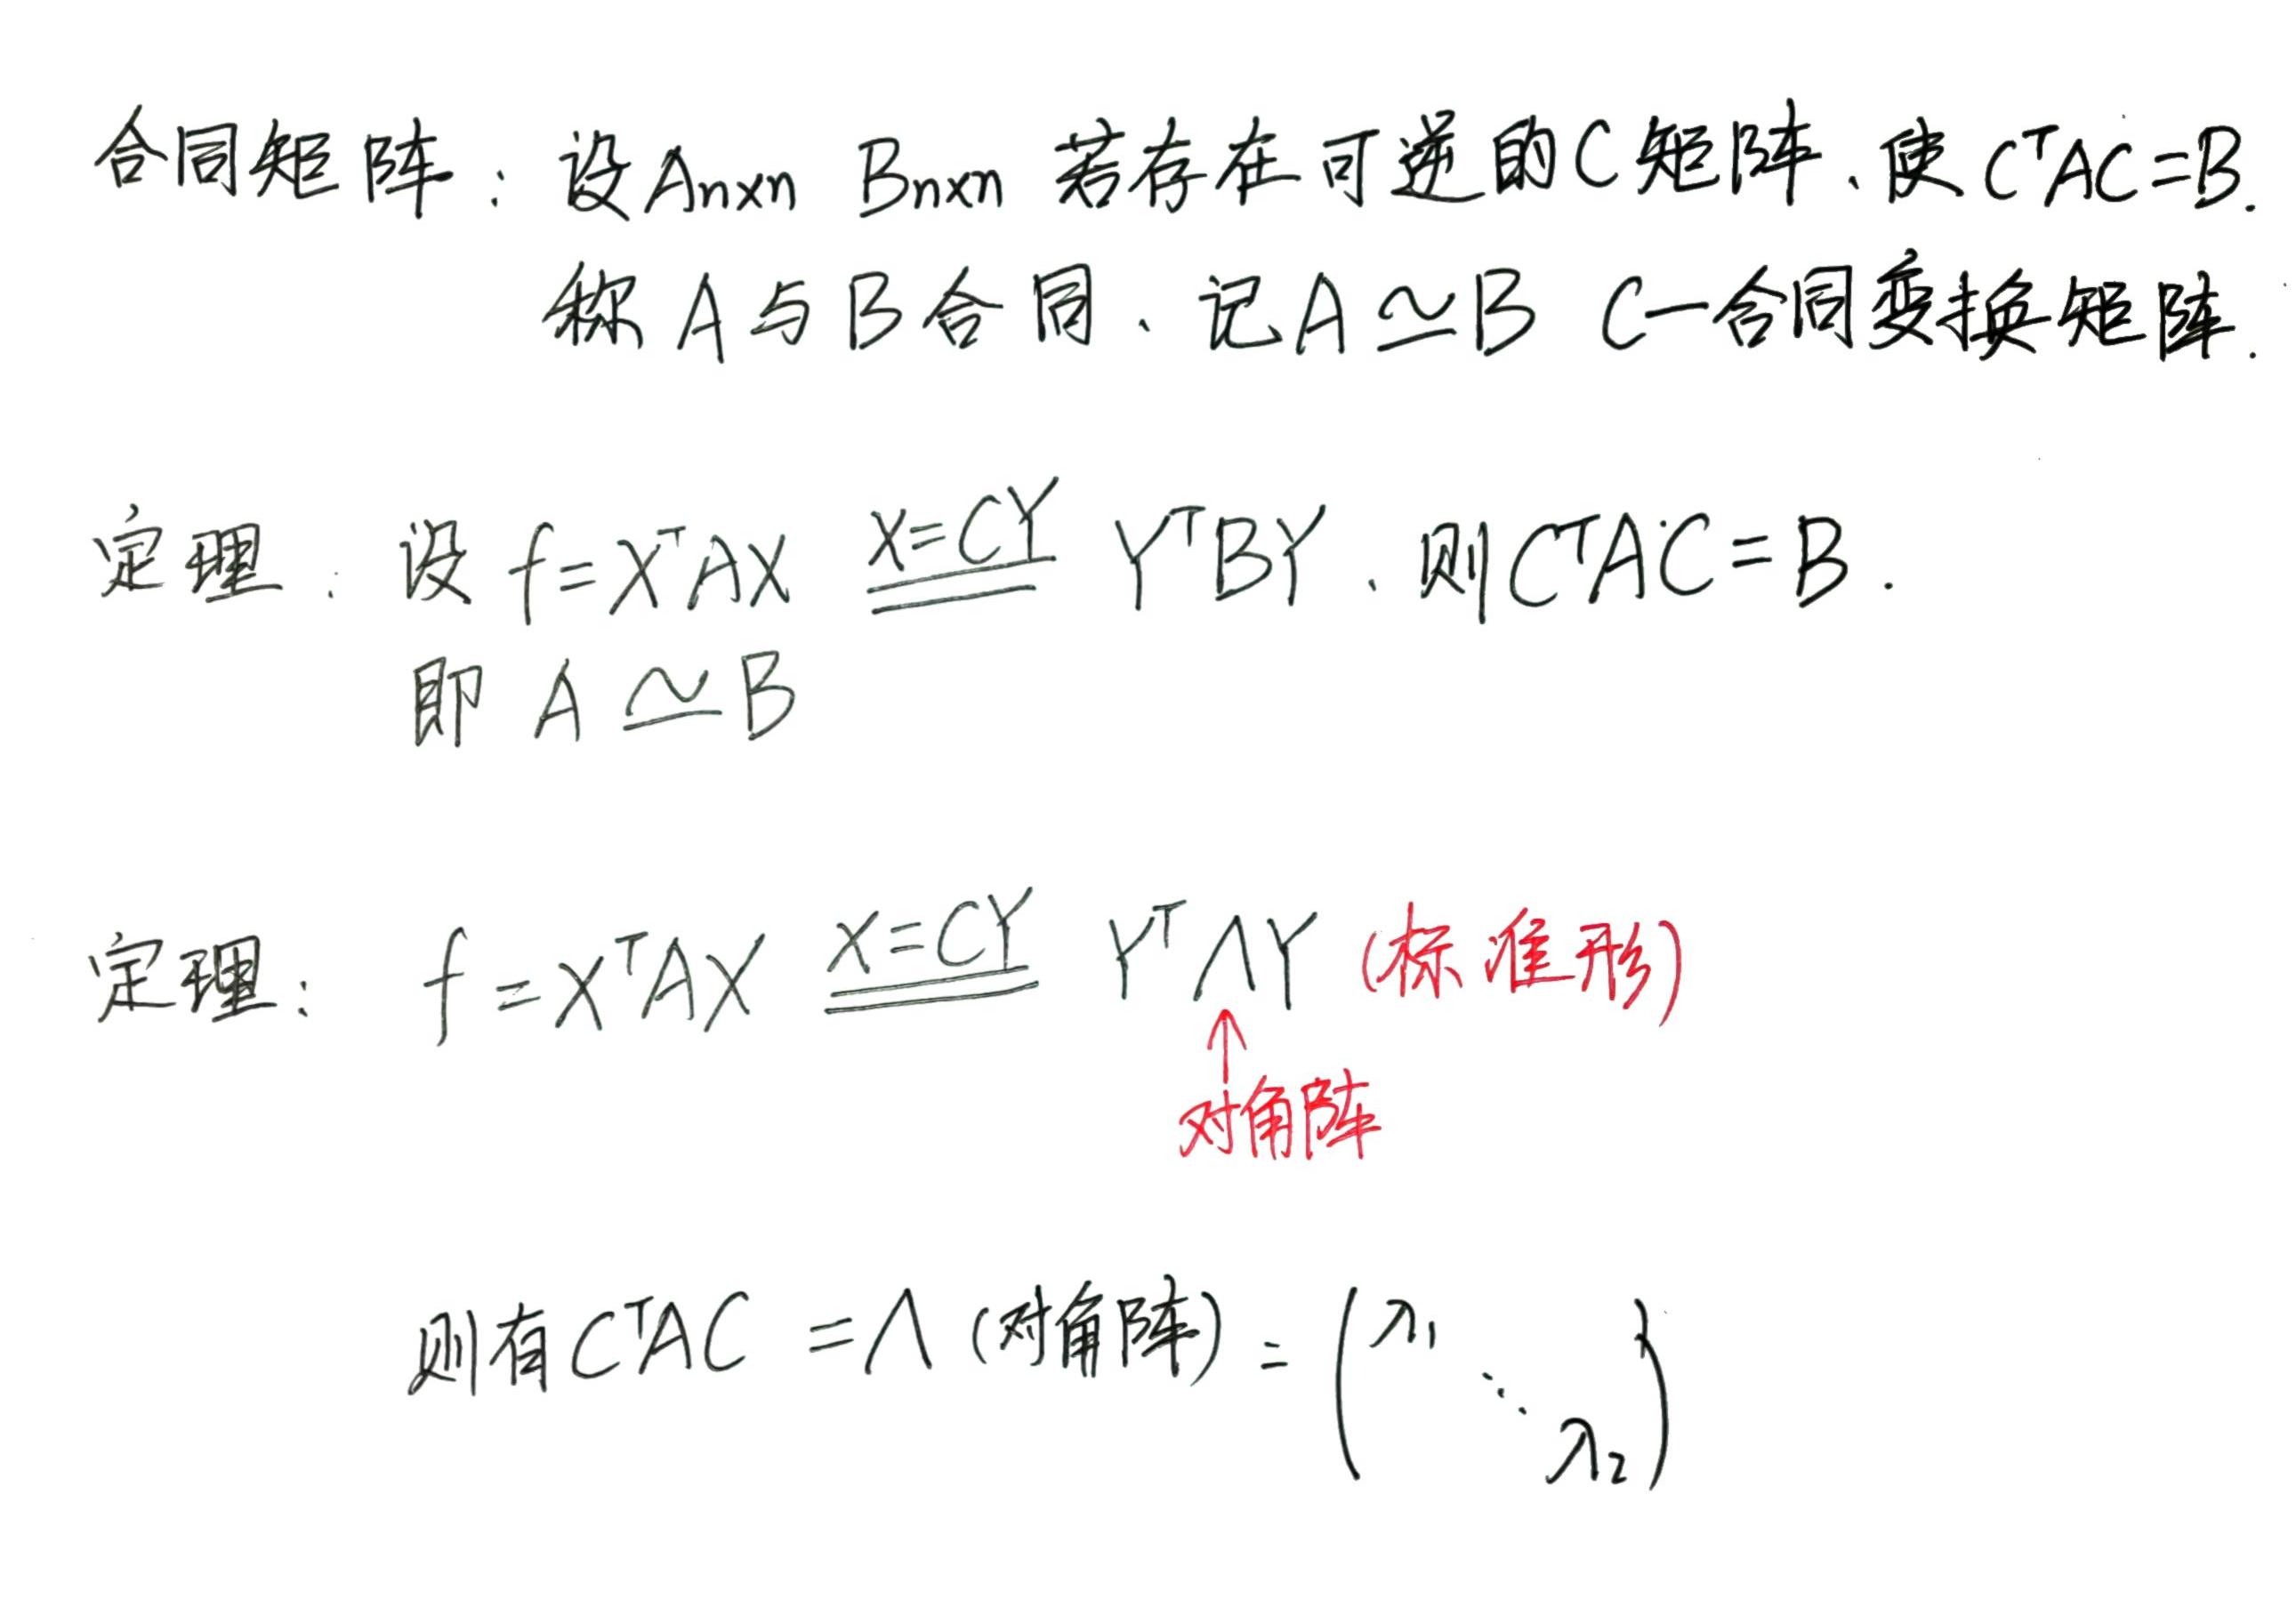 合同矩阵：设Aₙₓₙ Bₙₓₙ 若存在可逆的C矩阵、使 CᵀAC=B.
称 A 与 B 合同、记A≃B C—合同变换矩阵.
定理：设 f=XᵀAX X=CY YᵀBY、则CᵀAC=B.
即 A≃B
定理： f=XᵀAX X=CY YᵀΛY (标准形)
↑
对角阵
则有CᵀAC =Λ (对角阵) = (λ₁ ⋱ λ₂)